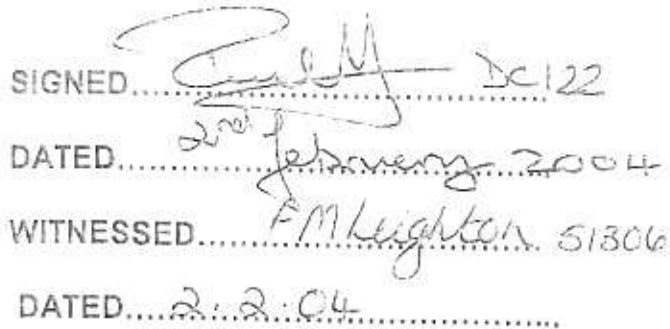 SIGNED.................... DC122
DATED.......2nd February 2004
WITNESSED.......FM Leighton 51306
DATED...2.2.04....................